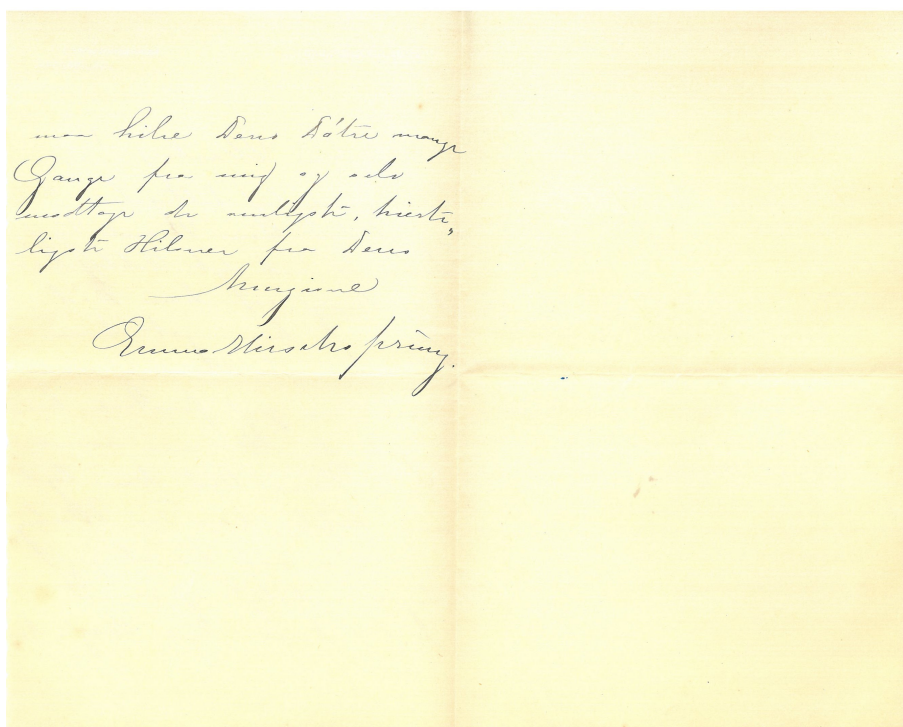 maa hilse Deres Døtre mange
Gange fra mig og selv
modtage de venligste, hierte„
ligste Hilsner fra Deres
hengivne
Emma Hirschsprung.